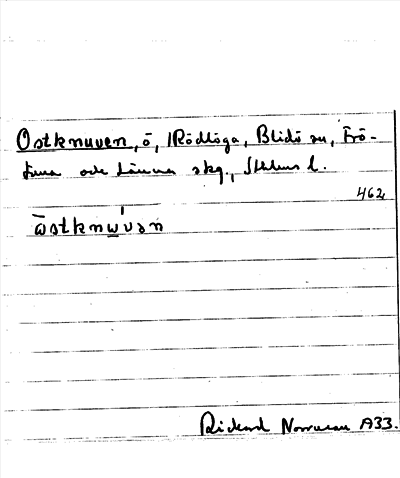 Ostknuven, ö, Rödlöga, Blidö sn, Frö-
tuna och Länna skg., Sthlms l.
462
ω̄stknẃvən
Rickard Norrman 1933.